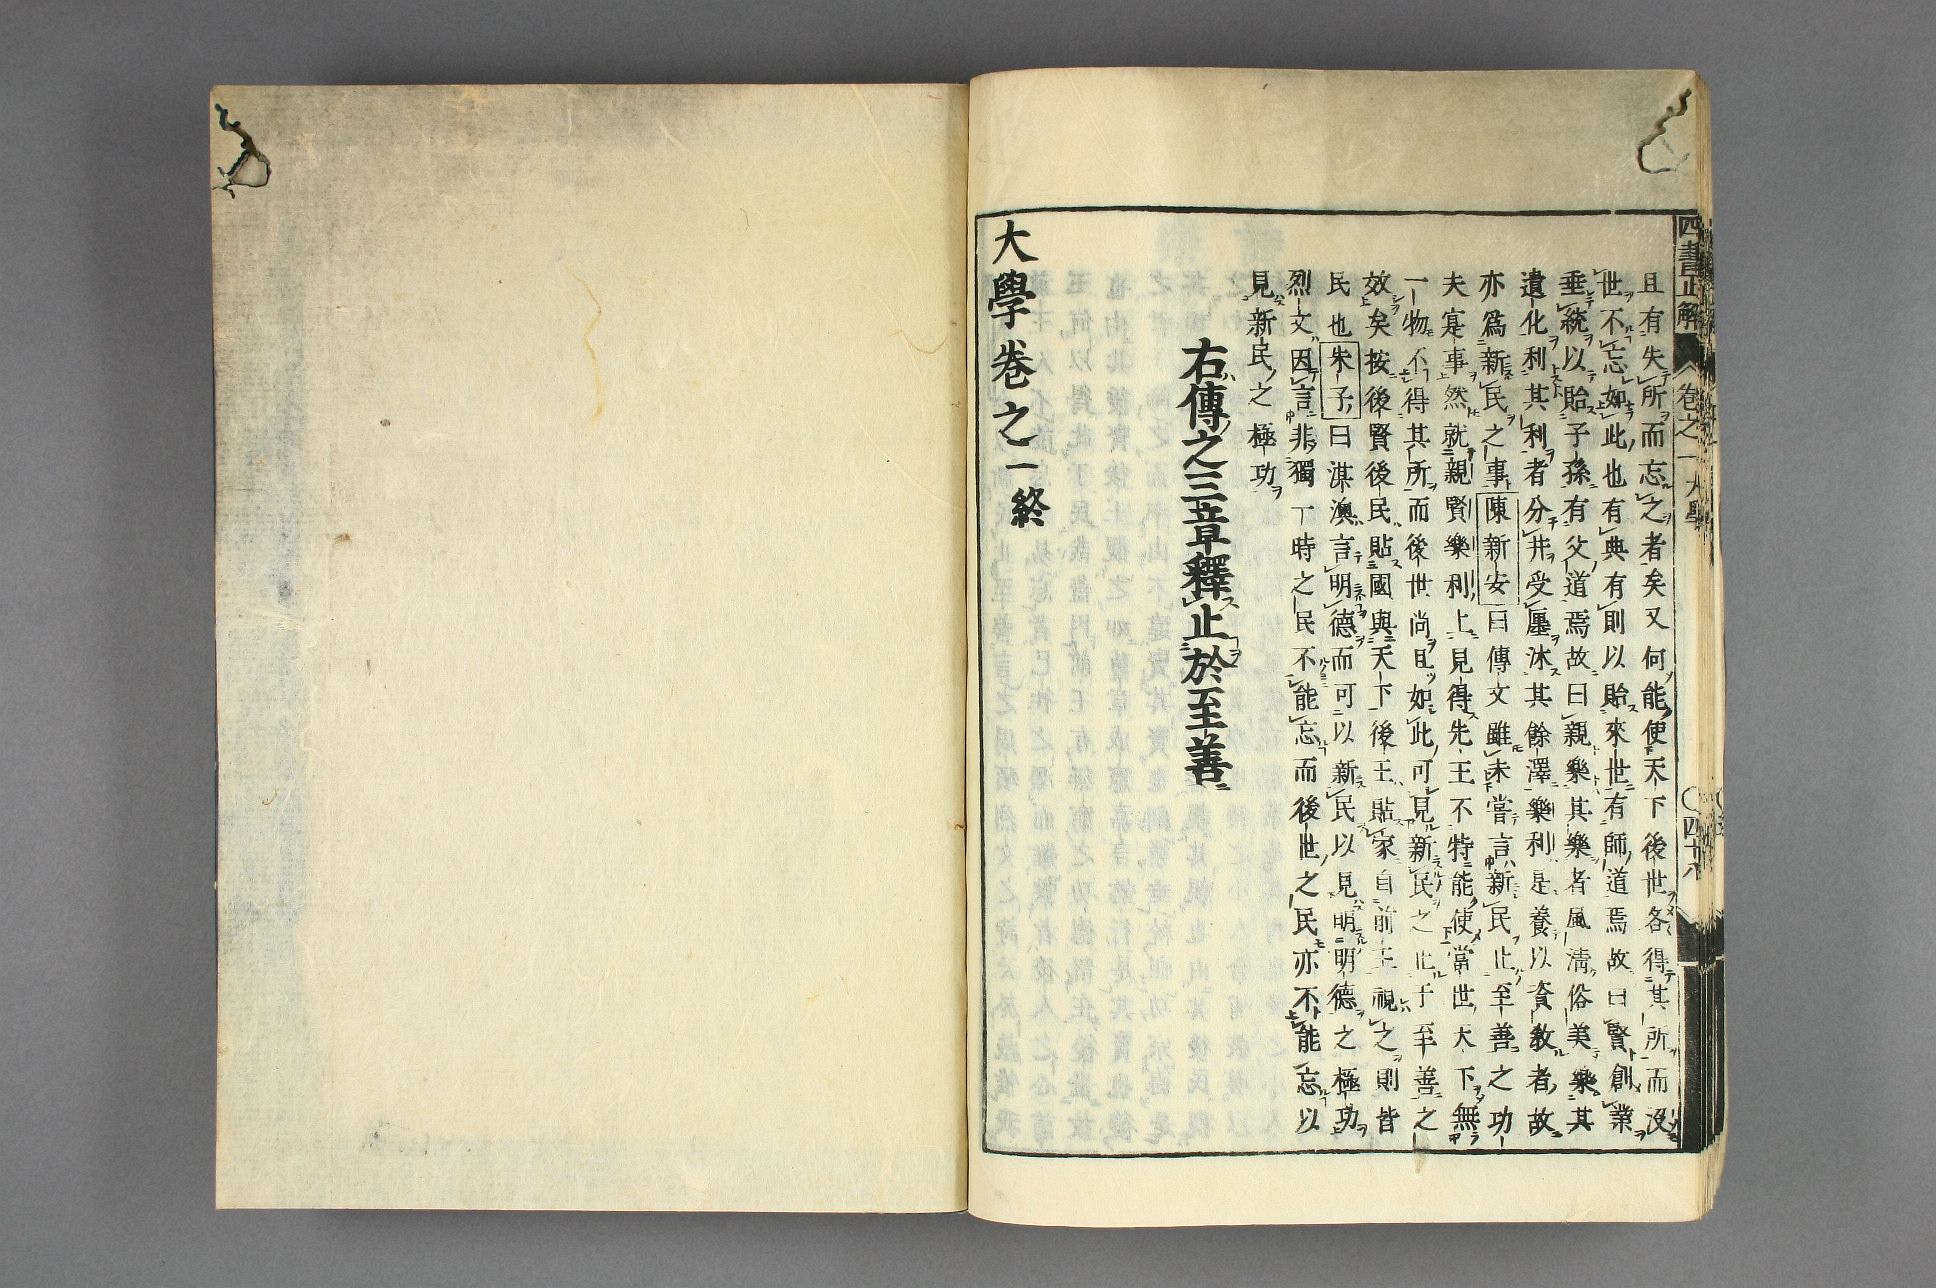 四書正解 卷之一 大學 四十八
且有失所而忘之者矣又何能使天下後世各得其所而沒
世不忘如此也有典有則以貽來世有師道焉故曰賢創業
垂統以貽子孫有父道焉故曰親樂其樂者風淸俗美樂其
遺化利其利者分井受廛沐其餘澤樂利是養以資敎者故
亦爲新民之事陳新安曰傳文雖未嘗言新民止至善之功
夫寔事然就親賢樂利上見得先王不特能使當世天下無
一物不得其所而後世尚且如此可見新民之止于至善之
效矣按後賢後民貼國與天下後王貼家自前王視之則皆
民也朱子曰淇澳言明德而可以新民以見明明德之極功
烈文因言非獨一時之民不能忘而後世之民亦不能忘以
見新民之極功
右傳之三章釋止於至善
大學卷之一終